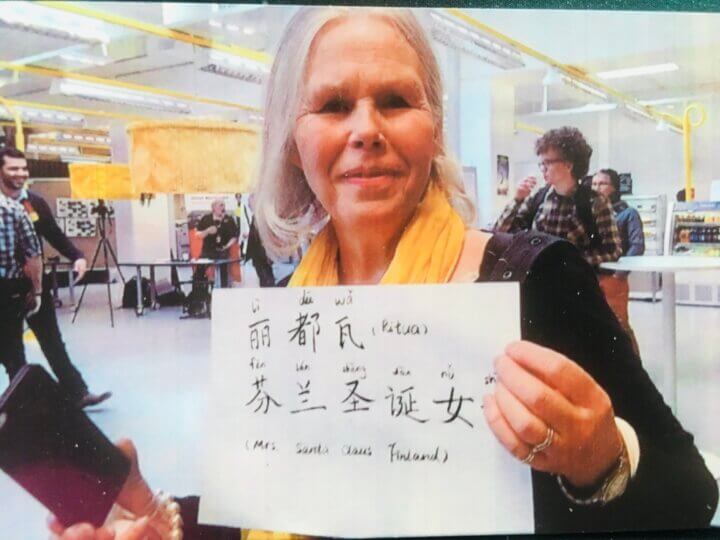 lì dū wǎ
丽 都 瓦 (Ritua)
fēn lán shèng dàn nǚ
芬 兰 圣 诞 女
(Mrs. Santa Claus Finland)